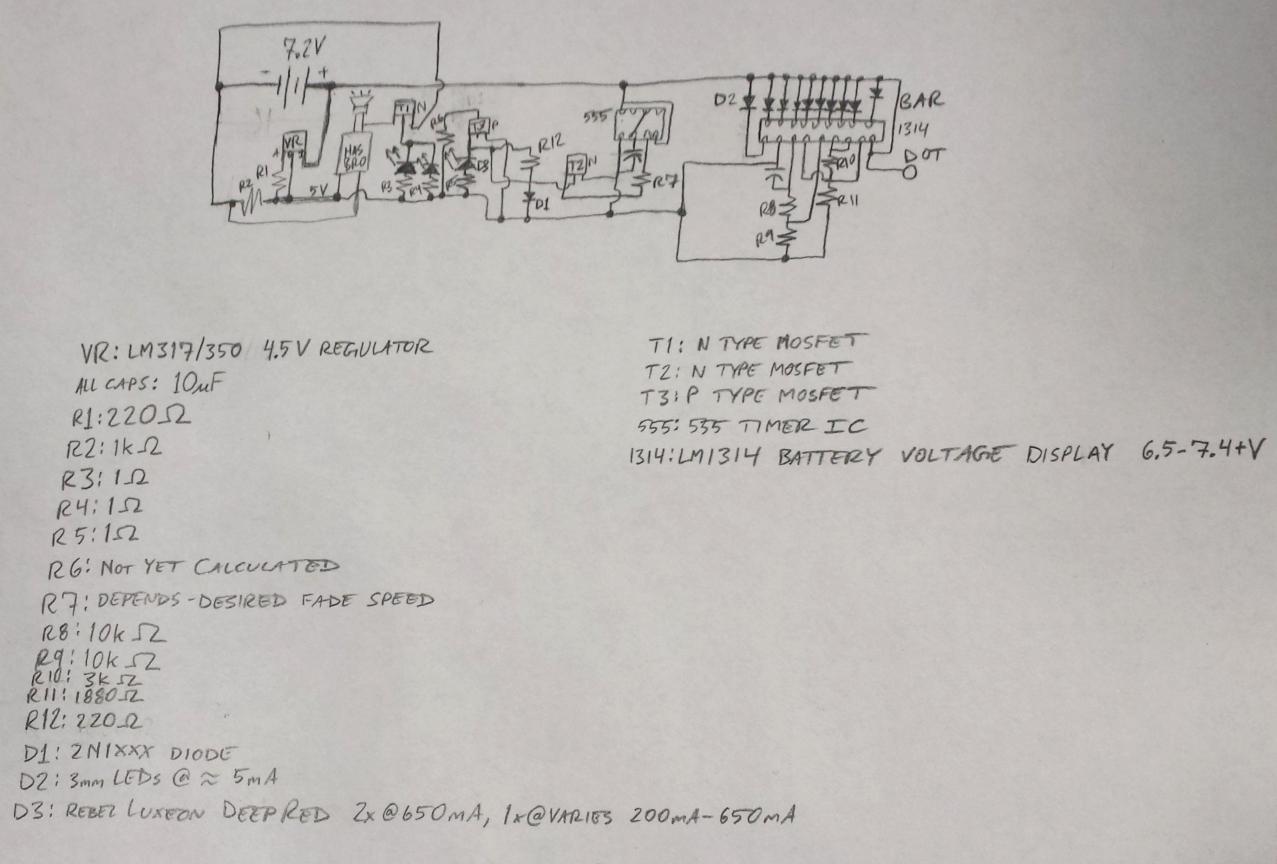 7.2V
- +
T1 N
R6
T3 P
555
D2
BAR
1314
VR
HAS
BRO
R12
T2 N
DOT
R1
R2
5V
R3
R4
D3
D1
R7
R10
R8
R11
R9
VR: LM317/350 4.5V REGULATOR
ALL CAPS: 10µF
R1: 220Ω
R2: 1kΩ
R3: 1Ω
R4: 1Ω
R5: 1Ω
R6: NOT YET CALCULATED
R7: DEPENDS-DESIRED FADE SPEED
R8: 10kΩ
R9: 10kΩ
R10: 3kΩ
R11: 1880Ω
R12: 220Ω
D1: 2N1XXX DIODE
D2: 3mm LEDs @ ≈ 5mA
D3: REBEL LUXEON DEEP RED 2x @650mA, 1x@VARIES 200mA-650mA
T1: N TYPE MOSFET
T2: N TYPE MOSFET
T3: P TYPE MOSFET
555: 555 TIMER IC
1314: LM1314 BATTERY VOLTAGE DISPLAY 6.5-7.4+V